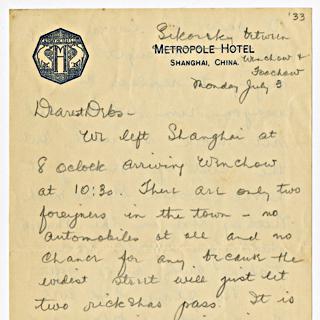 '33
Sikorsky between
METROPOLE HOTEL
Winchow &
SHANGHAI, CHINA.
Foochow
Monday July 3
Dearest Dibs -
We left Shanghai at
8 oclock arriving Winchow
at 10:30. There are only two
foreigners in the town - no
automobiles at all and no
chance for any because the
widest street will just let
two rickshas pass. It is